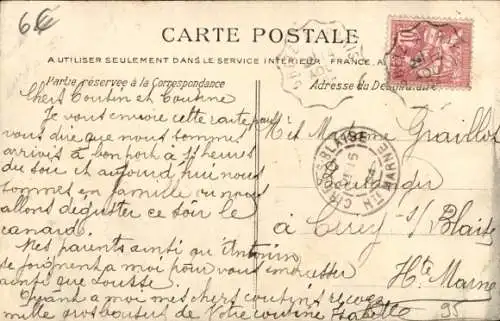 6€
CARTE POSTALE
A UTILISER SEULEMENT DANS LE SERVICE INTÉRIEUR FRANCE, A
Partie réservée à la Correspondance
Adresse du Destinataire
10
Chers Cousin et Cousine
Je vous envoie cette carte pour
vous dire que nous sommes
arrivés à bon port à 11 heures
du soir et aujourd'hui nous
sommes en famille ou nous
allons déguster ce soir le
canard.
Mes parents ainsi que Antonin
se joignent a moi pour vous
ainsi que
Quant a moi mes chers cousins
mille gros baisers de Votre cousine Isabelle
M et Madame Graillot
Boulanger
à Cirey-s/Blaise
Hte Marne
CIREY-S-BLAISE
HTE MARNE
95